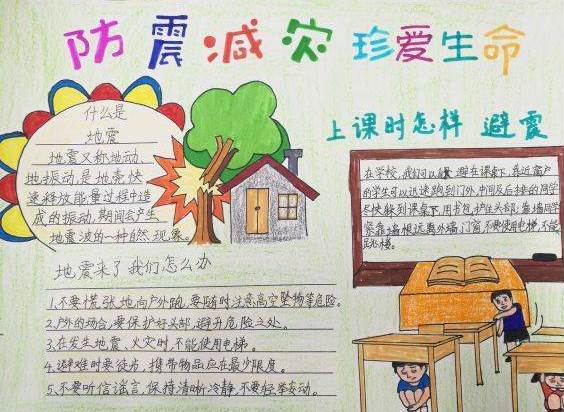 防震减灾 珍爱生命
什么是
地震
地震又称地动、
地振动,是地壳快
速释放能量过程中造
成的振动,期间会产生
地震波的一种自然现象。
上课时怎样 避震
在学校,我们可以 避在课桌下,靠近窗户
的学生可以迅速跑到门外,中间及后排的同学
尽快躲到课桌下,用书包护住头部;靠墙同学
紧靠墙根远离外墙、门窗,不要使用电梯,不能
跳楼。
地震来了我们怎么办
1.不要慌张地向户外跑,要随时注意高空坠物等危险。
2.户外的场合,要保护好头部,避开危险之处。
3.在发生地震、火灾时,不能使用电梯。
4.避难时要徒步,携带物品应在最少限度。
5.不要听信谣言,保持清晰冷静,不要轻举妄动。